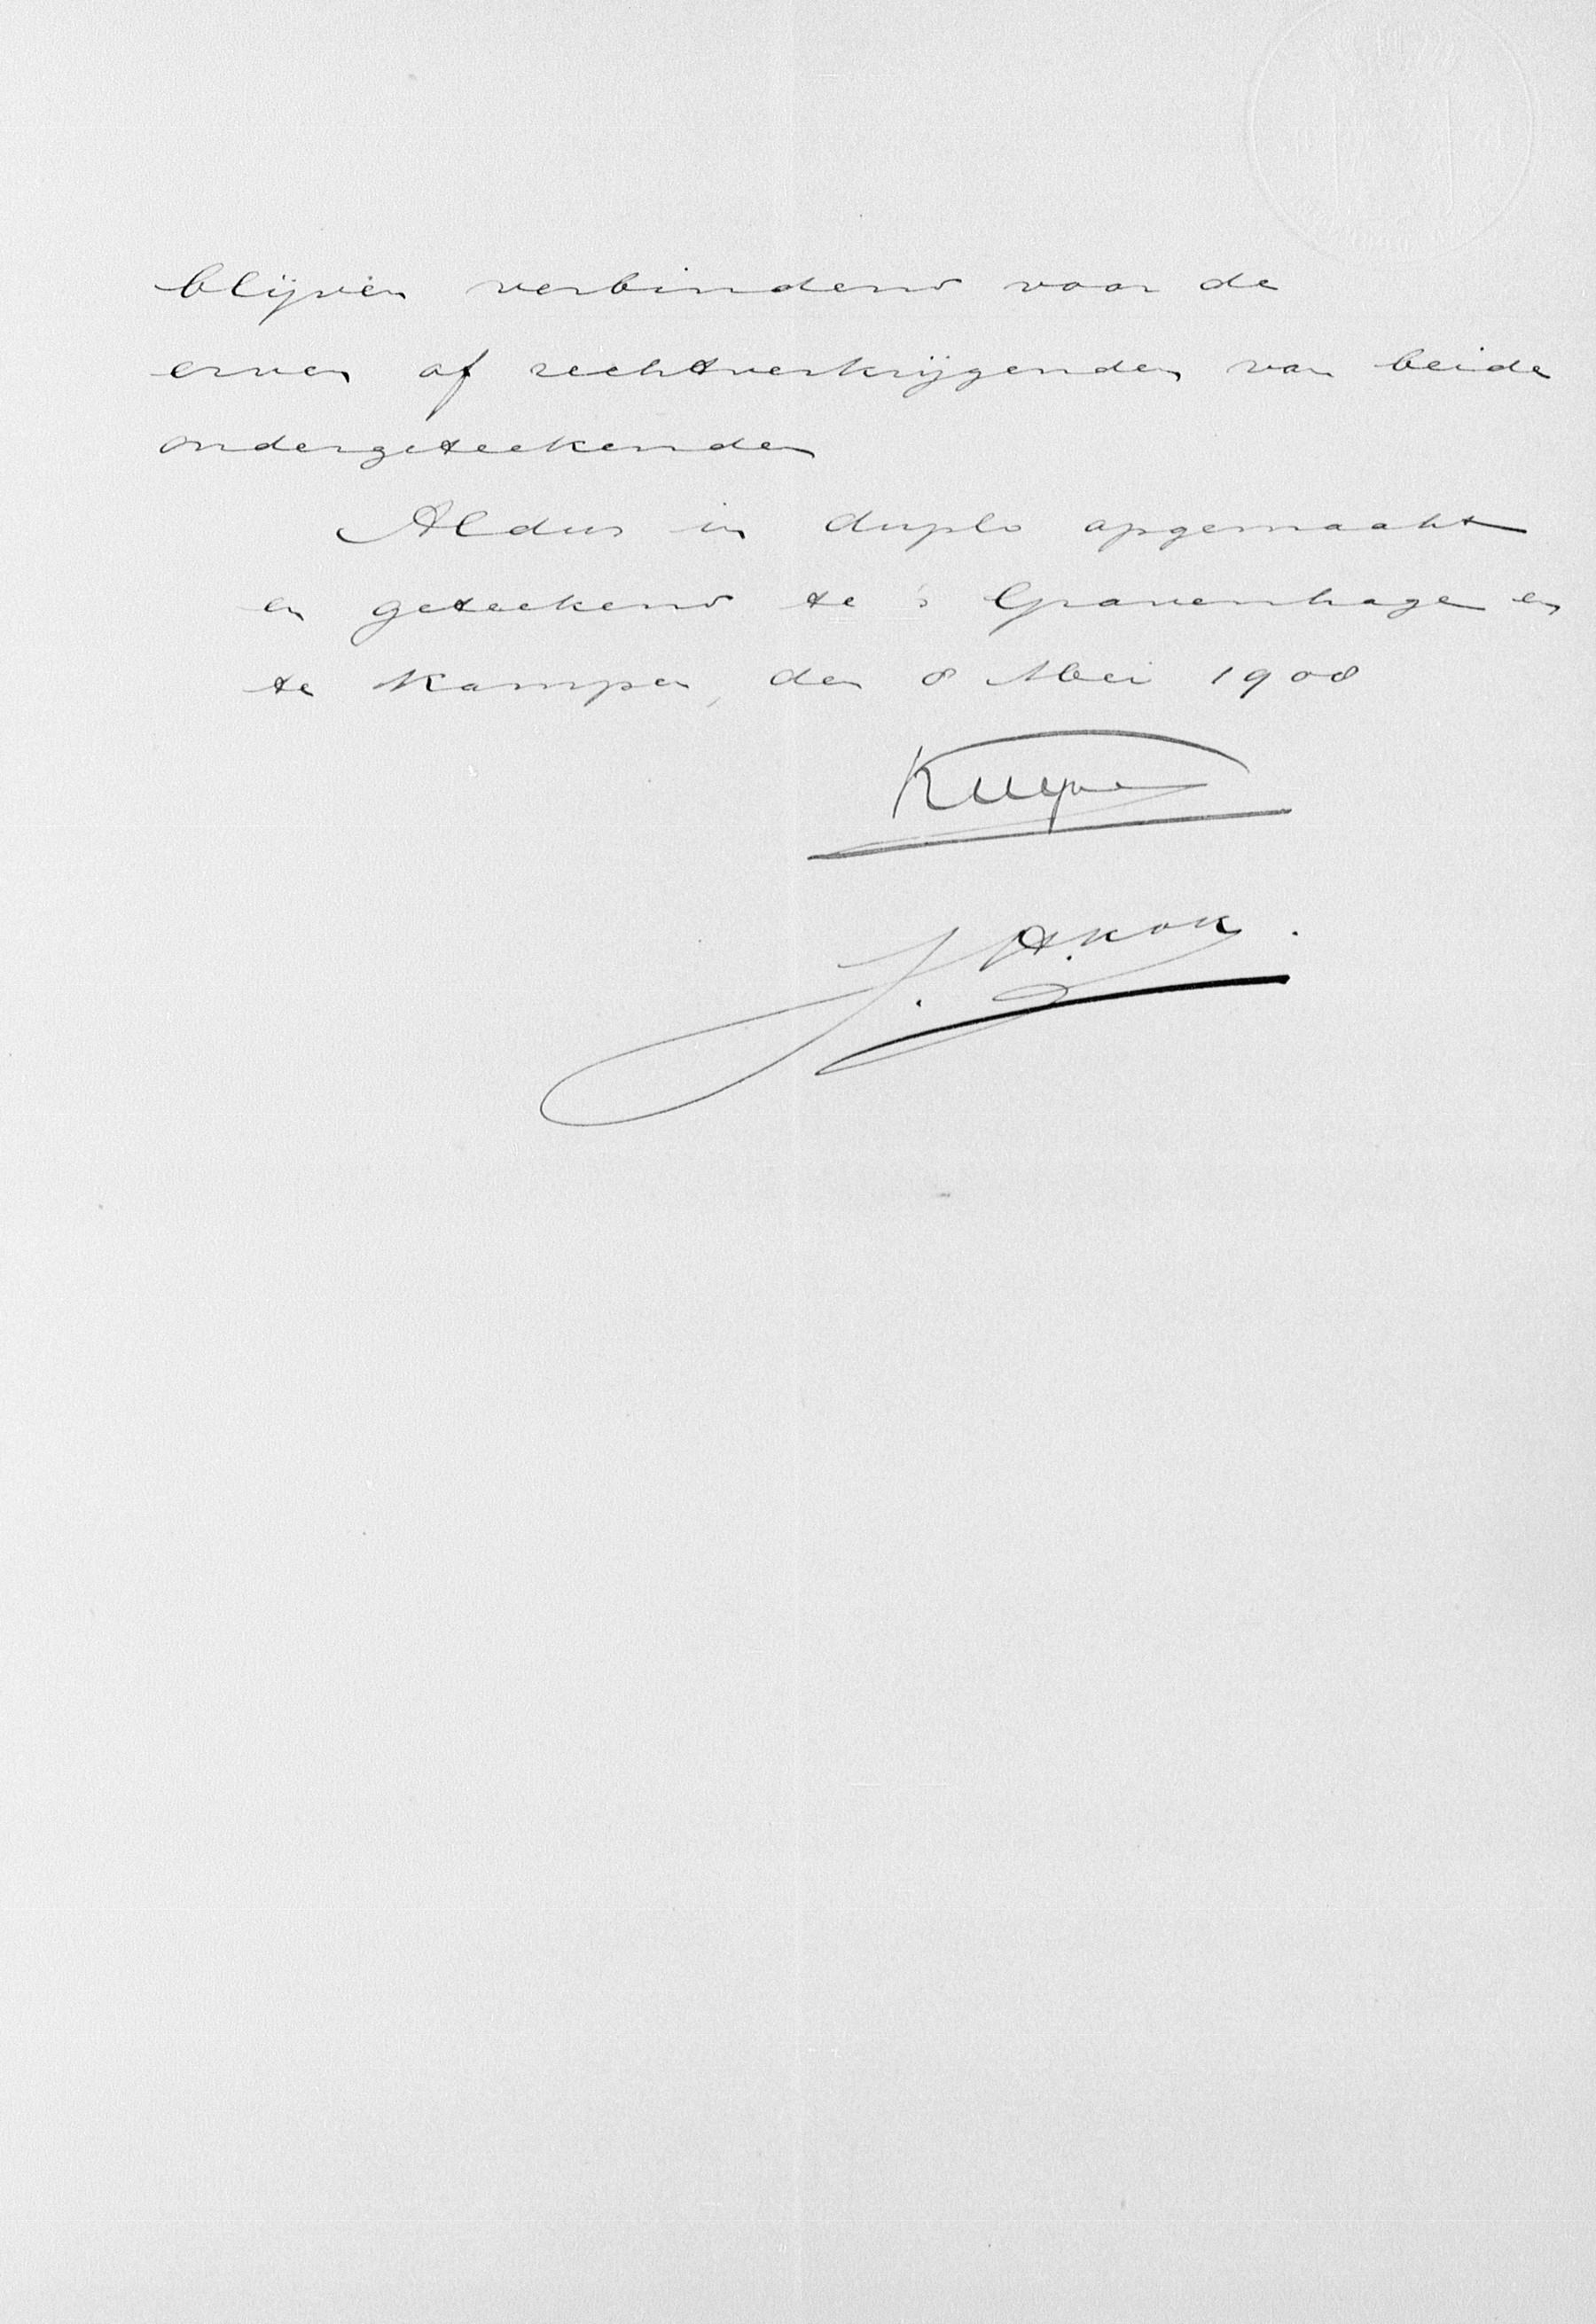 blijven verbindend voor de
erven of rechtverkrijgenden van beide
ondergeteekenden
Aldus in duplo opgemaakt
en geteekend te 's Gravenhage en
te Kampen, den 8 Mei 1908
Kuyper
J. H. Kok.